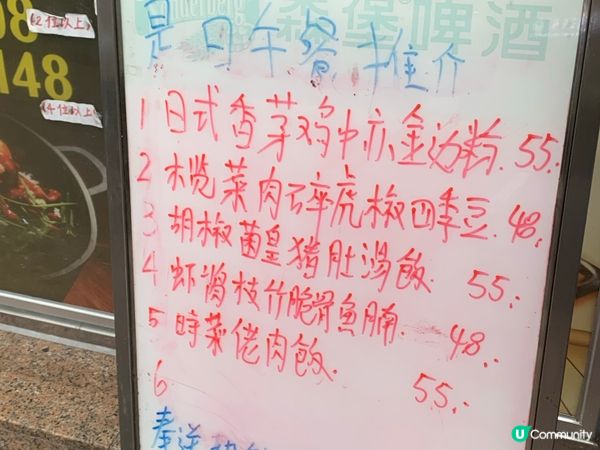 (2位以上)
08
148
(4位以上)
桑堡啤酒
是日午餐推介
1 日式香茅鸡中亦金边粉. 55.
2 榄菜肉碎虎椒四季豆. 48.
3 胡椒菌皇猪肚汤飯. 55.
4 虾酱枝竹脆骨魚腩. 48.
5 時菜佬肉飯. 55.
6
奉送
U Community